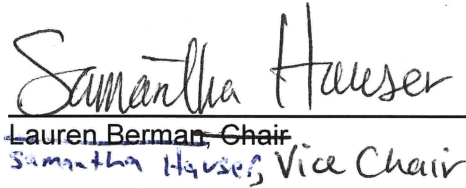 Samantha Hauser
Lauren Berman, Chair
Samantha Hauser, Vice Chair